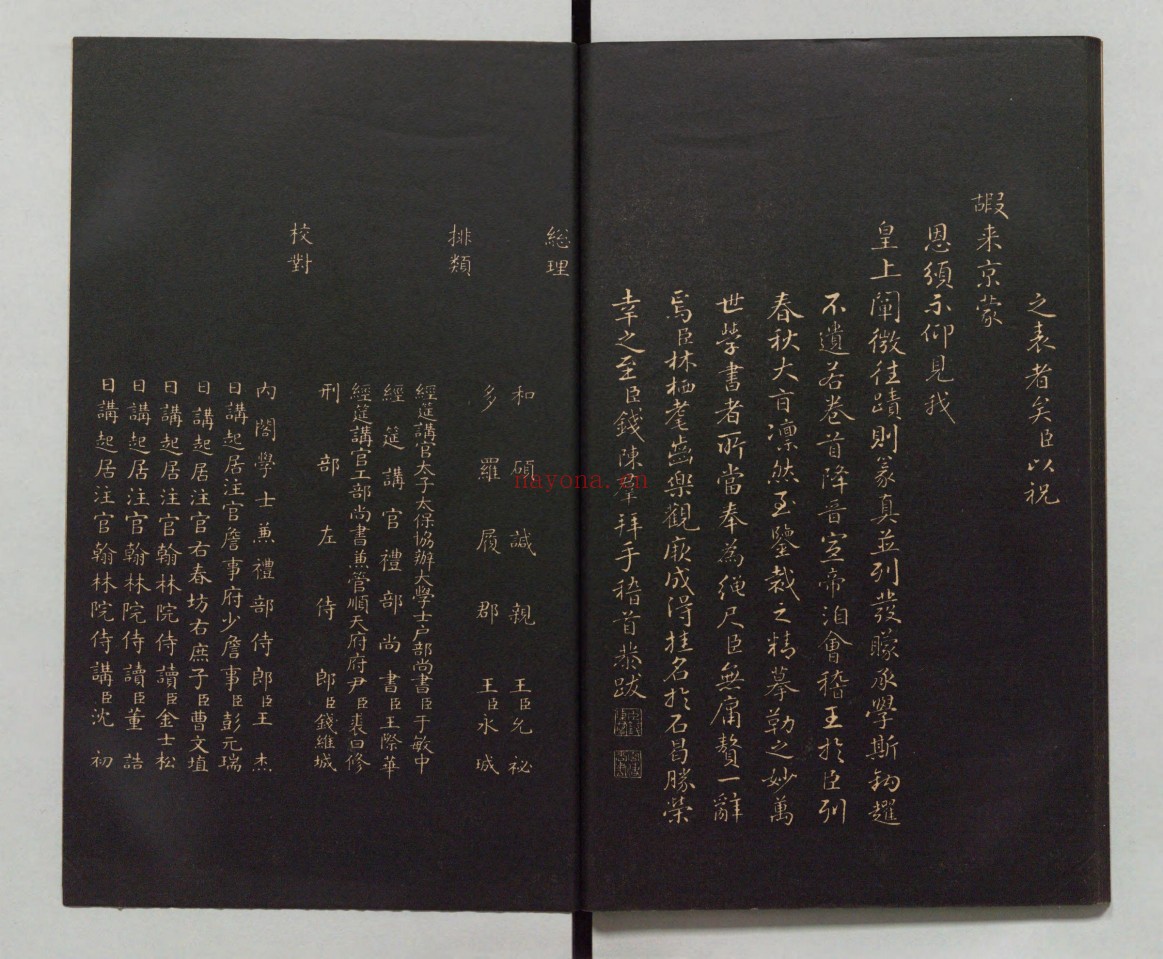 之表者矣臣以祝
嘏来京蒙
恩頒示仰見我
皇上闡微往蹟則篆真並列發矇承學斯鉤趯
不遺若卷首降晉宣帝洎會稽王於臣列
春秋大旨凛然至鑒裁之精摹勒之妙萬
世學書者所當奉為繩尺臣無庸贅一辭
焉臣林栖耄齒樂觀厥成得挂名於石曷勝榮
幸之至臣錢陳羣拜手稽首恭跋
総理
和碩諴親王臣允祕
多羅履郡王臣永珹
排類
經筵講官太子太保協辦大學士户部尚書臣于敏中
經筵講官禮部尚書臣王際華
經筵講官工部尚書兼管順天府府尹臣裘曰修
刑部左侍郎臣錢維城
校對
内閣學士兼禮部侍郎臣王杰
日講起居注官詹事府少詹事臣彭元瑞
日講起居注官右春坊右庶子臣曹文埴
日講起居注官翰林院侍讀臣金士松
日講起居注官翰林院侍讀臣董誥
日講起居注官翰林院侍講臣沈初
nayona.cn